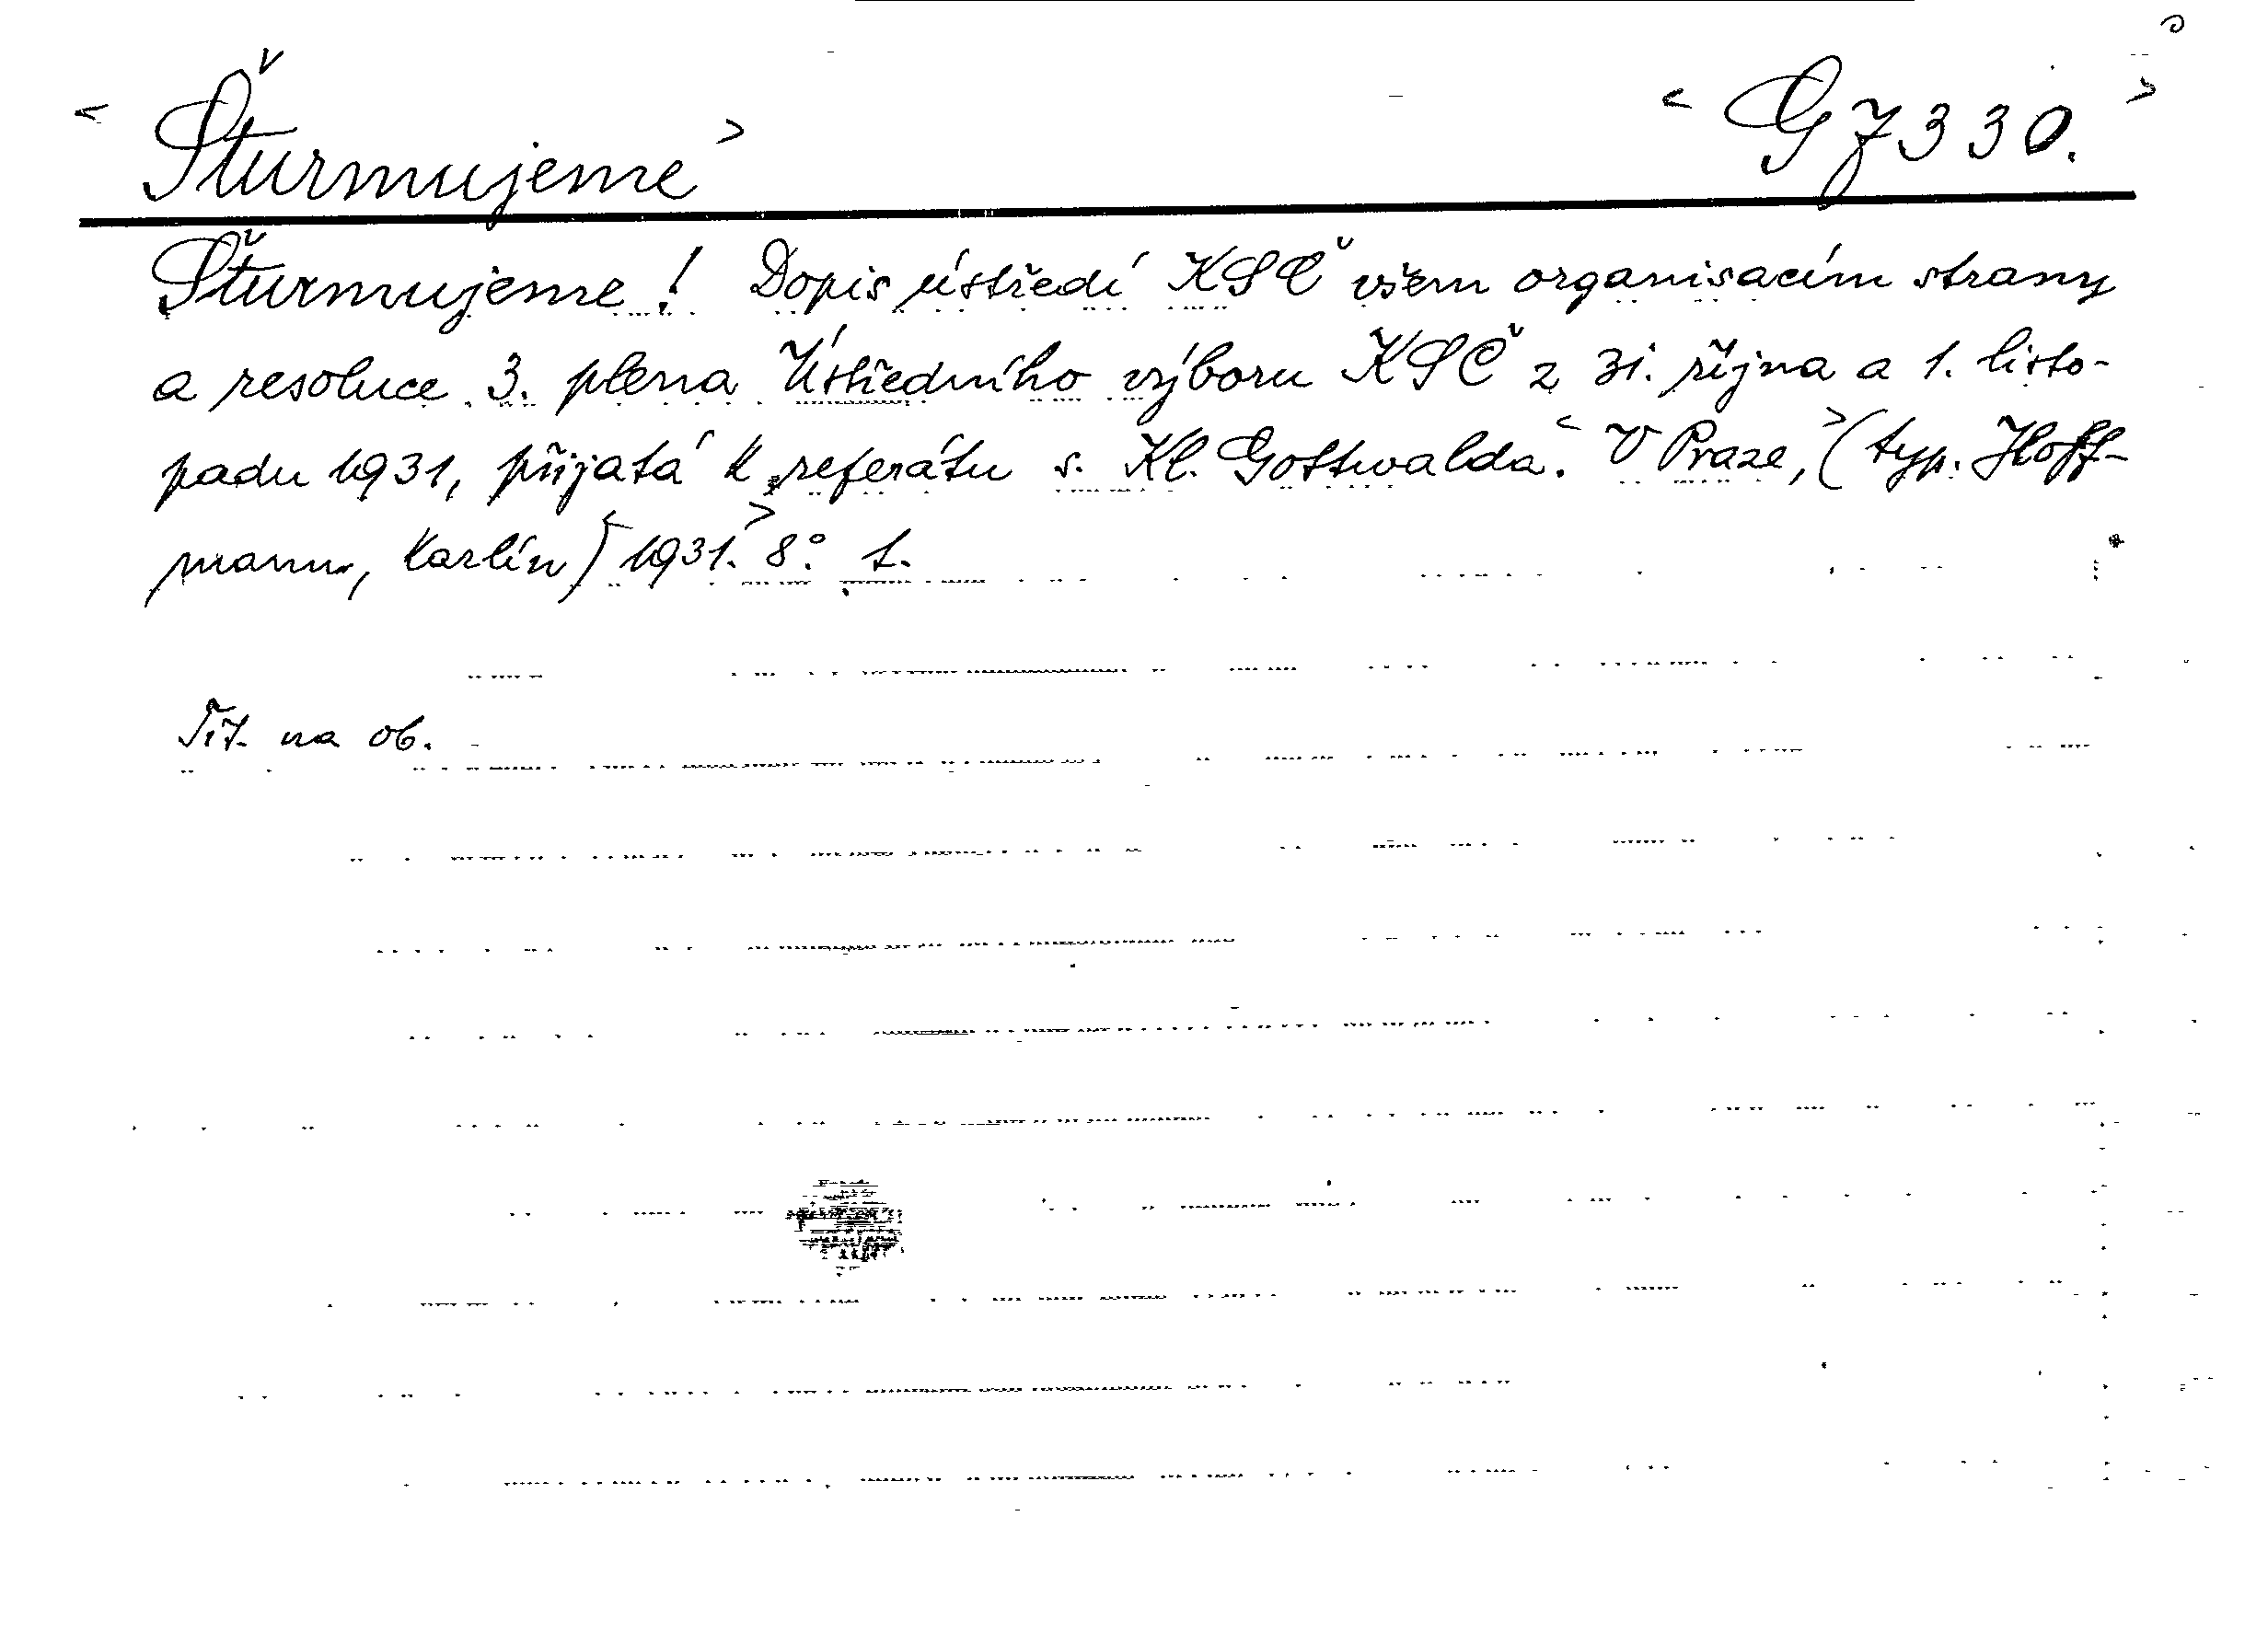 < Šturmujeme > < G 7330. >
Šturmujeme! Dopis ústředí KSČ všem organisacím strany
a resoluce 3. plena Ústředního výboru KSČ z 31. října a 1. listo-
padu 1931, přijatá k referátu s. Kl. Gottwalda. < V Praze, > (typ. Hoff-
mann, Karlín) < 1931. > 8°. 1.
Tit. na ob.